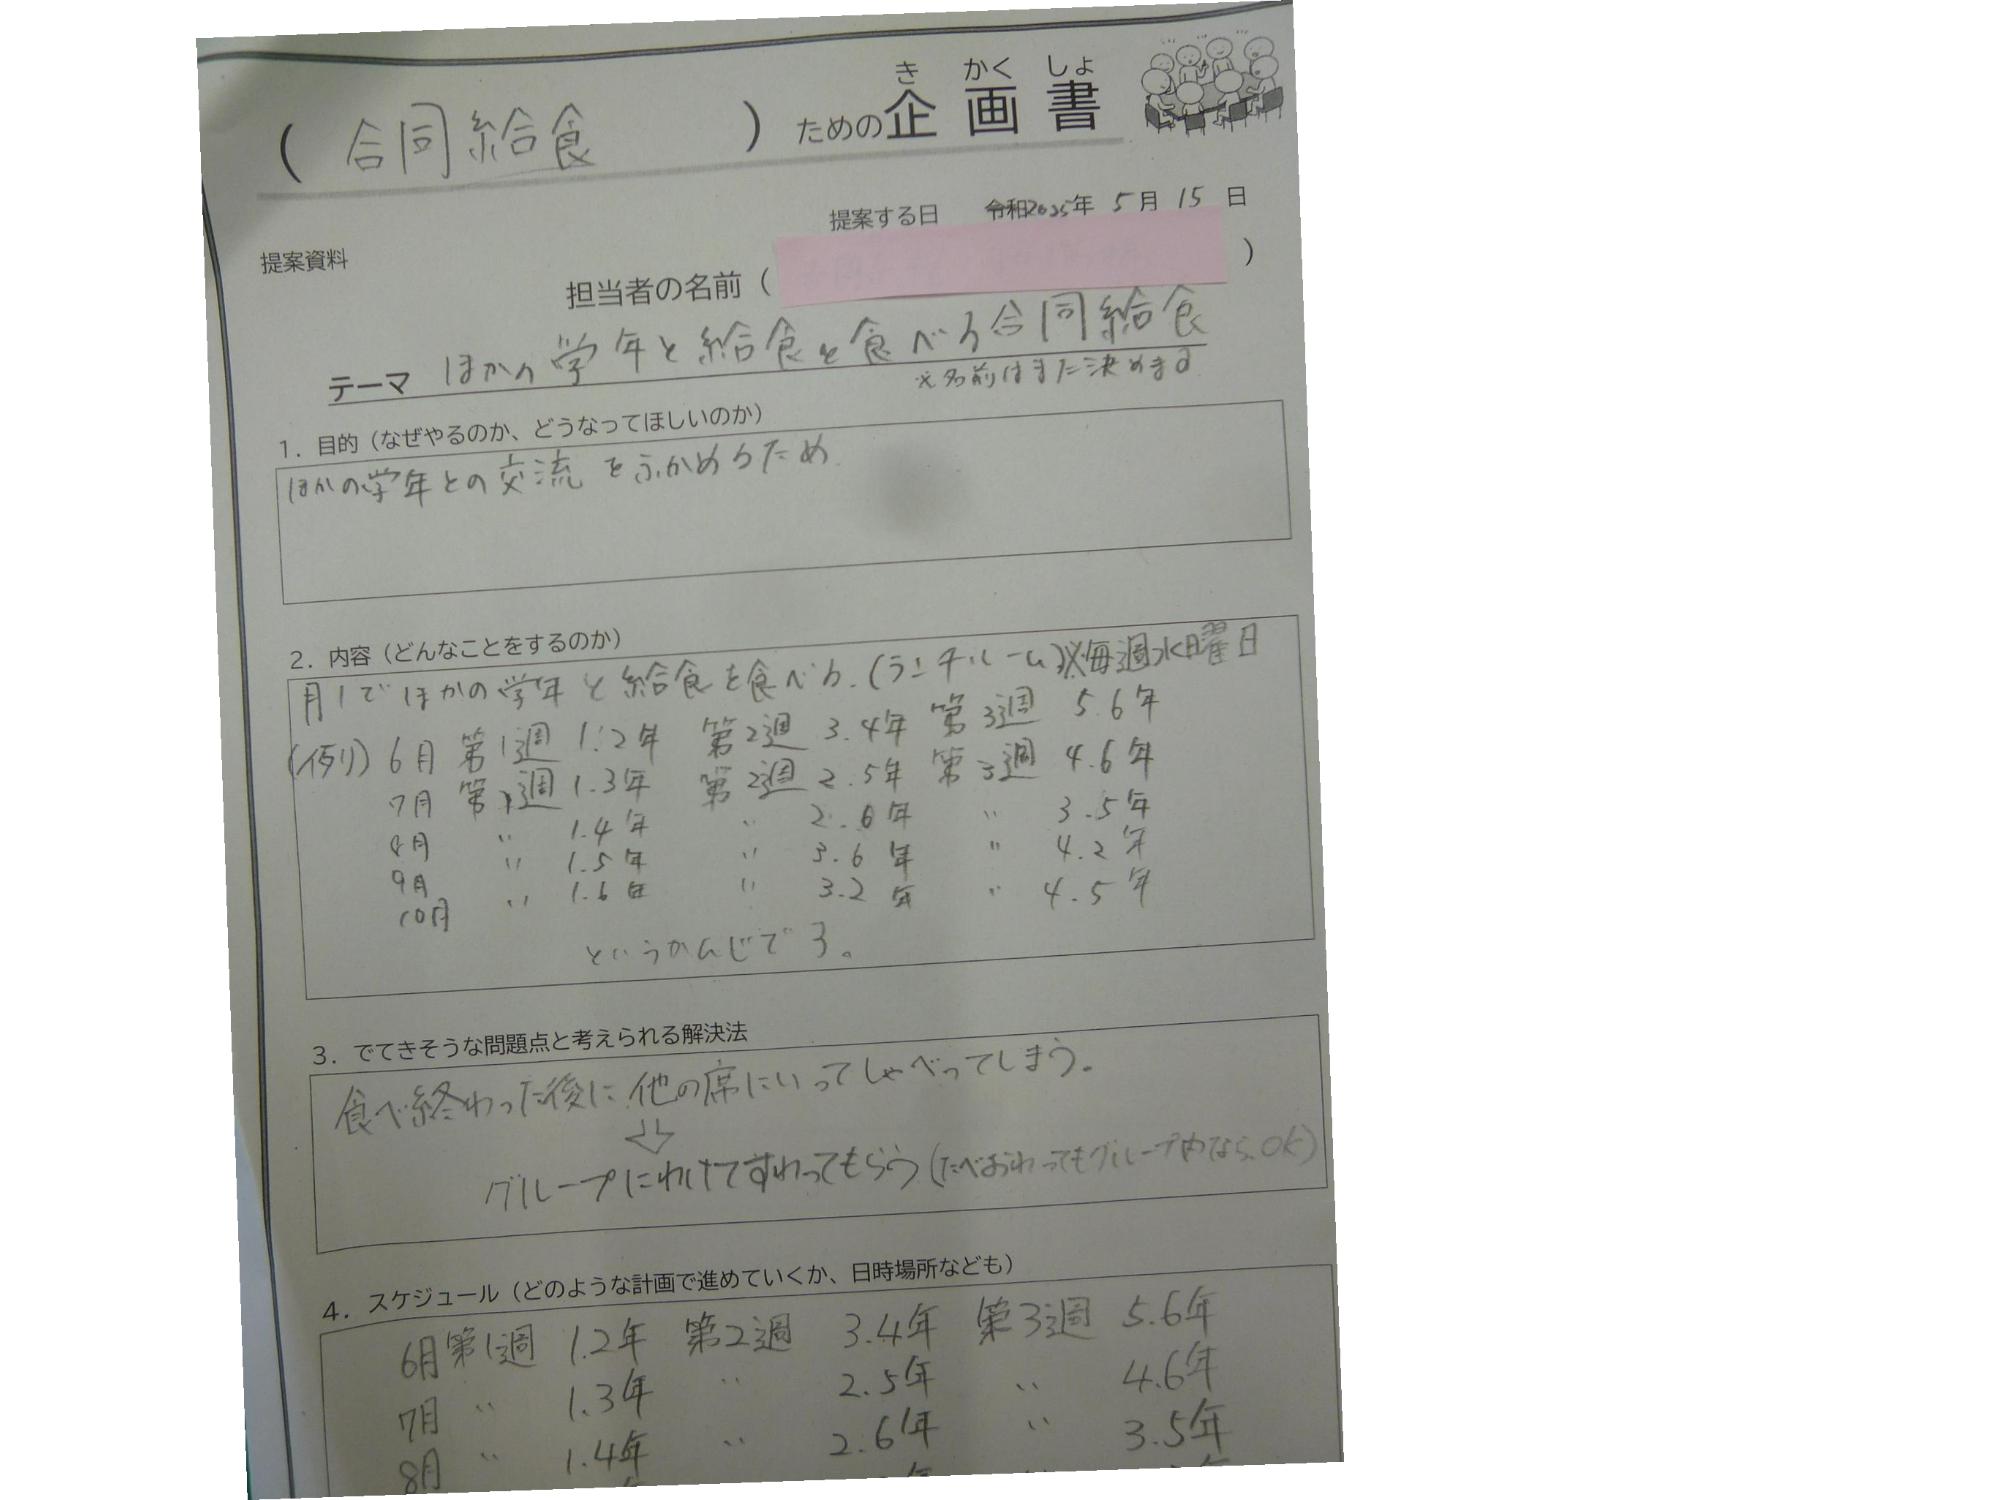 き かく しょ
( 合同給食 ) ための企画書
提案する日 令和2025年 5月 15日
提案資料
担当者の名前 ( )
テーマ ほかの学年と給食を食べる合同給食
※名前はまた決めます
1. 目的（なぜやるのか、どうなってほしいのか）
ほかの学年との交流をふかめるため
2. 内容（どんなことをするのか）
月1でほかの学年と給食を食べる.(ランチルーム)※毎週水曜日
(例) 6月 第1週 1.2年 第2週 3.4年 第3週 5.6年
7月 第1週 1.3年 第2週 2.5年 第3週 4.6年
8月 〃 1.4年 〃 2.6年 〃 3.5年
9月 〃 1.5年 〃 3.6年 〃 4.2年
10月 〃 1.6年 〃 3.2年 〃 4.5年
というかんじです。
3. でてきそうな問題点と考えられる解決法
食べ終わった後に他の席にいってしゃべってしまう。
⇩
グループにわけてすわってもらう(たべおわってもグループ内ならOK)
4. スケジュール（どのような計画で進めていくか、日時場所なども）
6月 第1週 1.2年 第2週 3.4年 第3週 5.6年
7月 〃 1.3年 〃 2.5年 〃 4.6年
8月 〃 1.4年 〃 2.6年 〃 3.5年